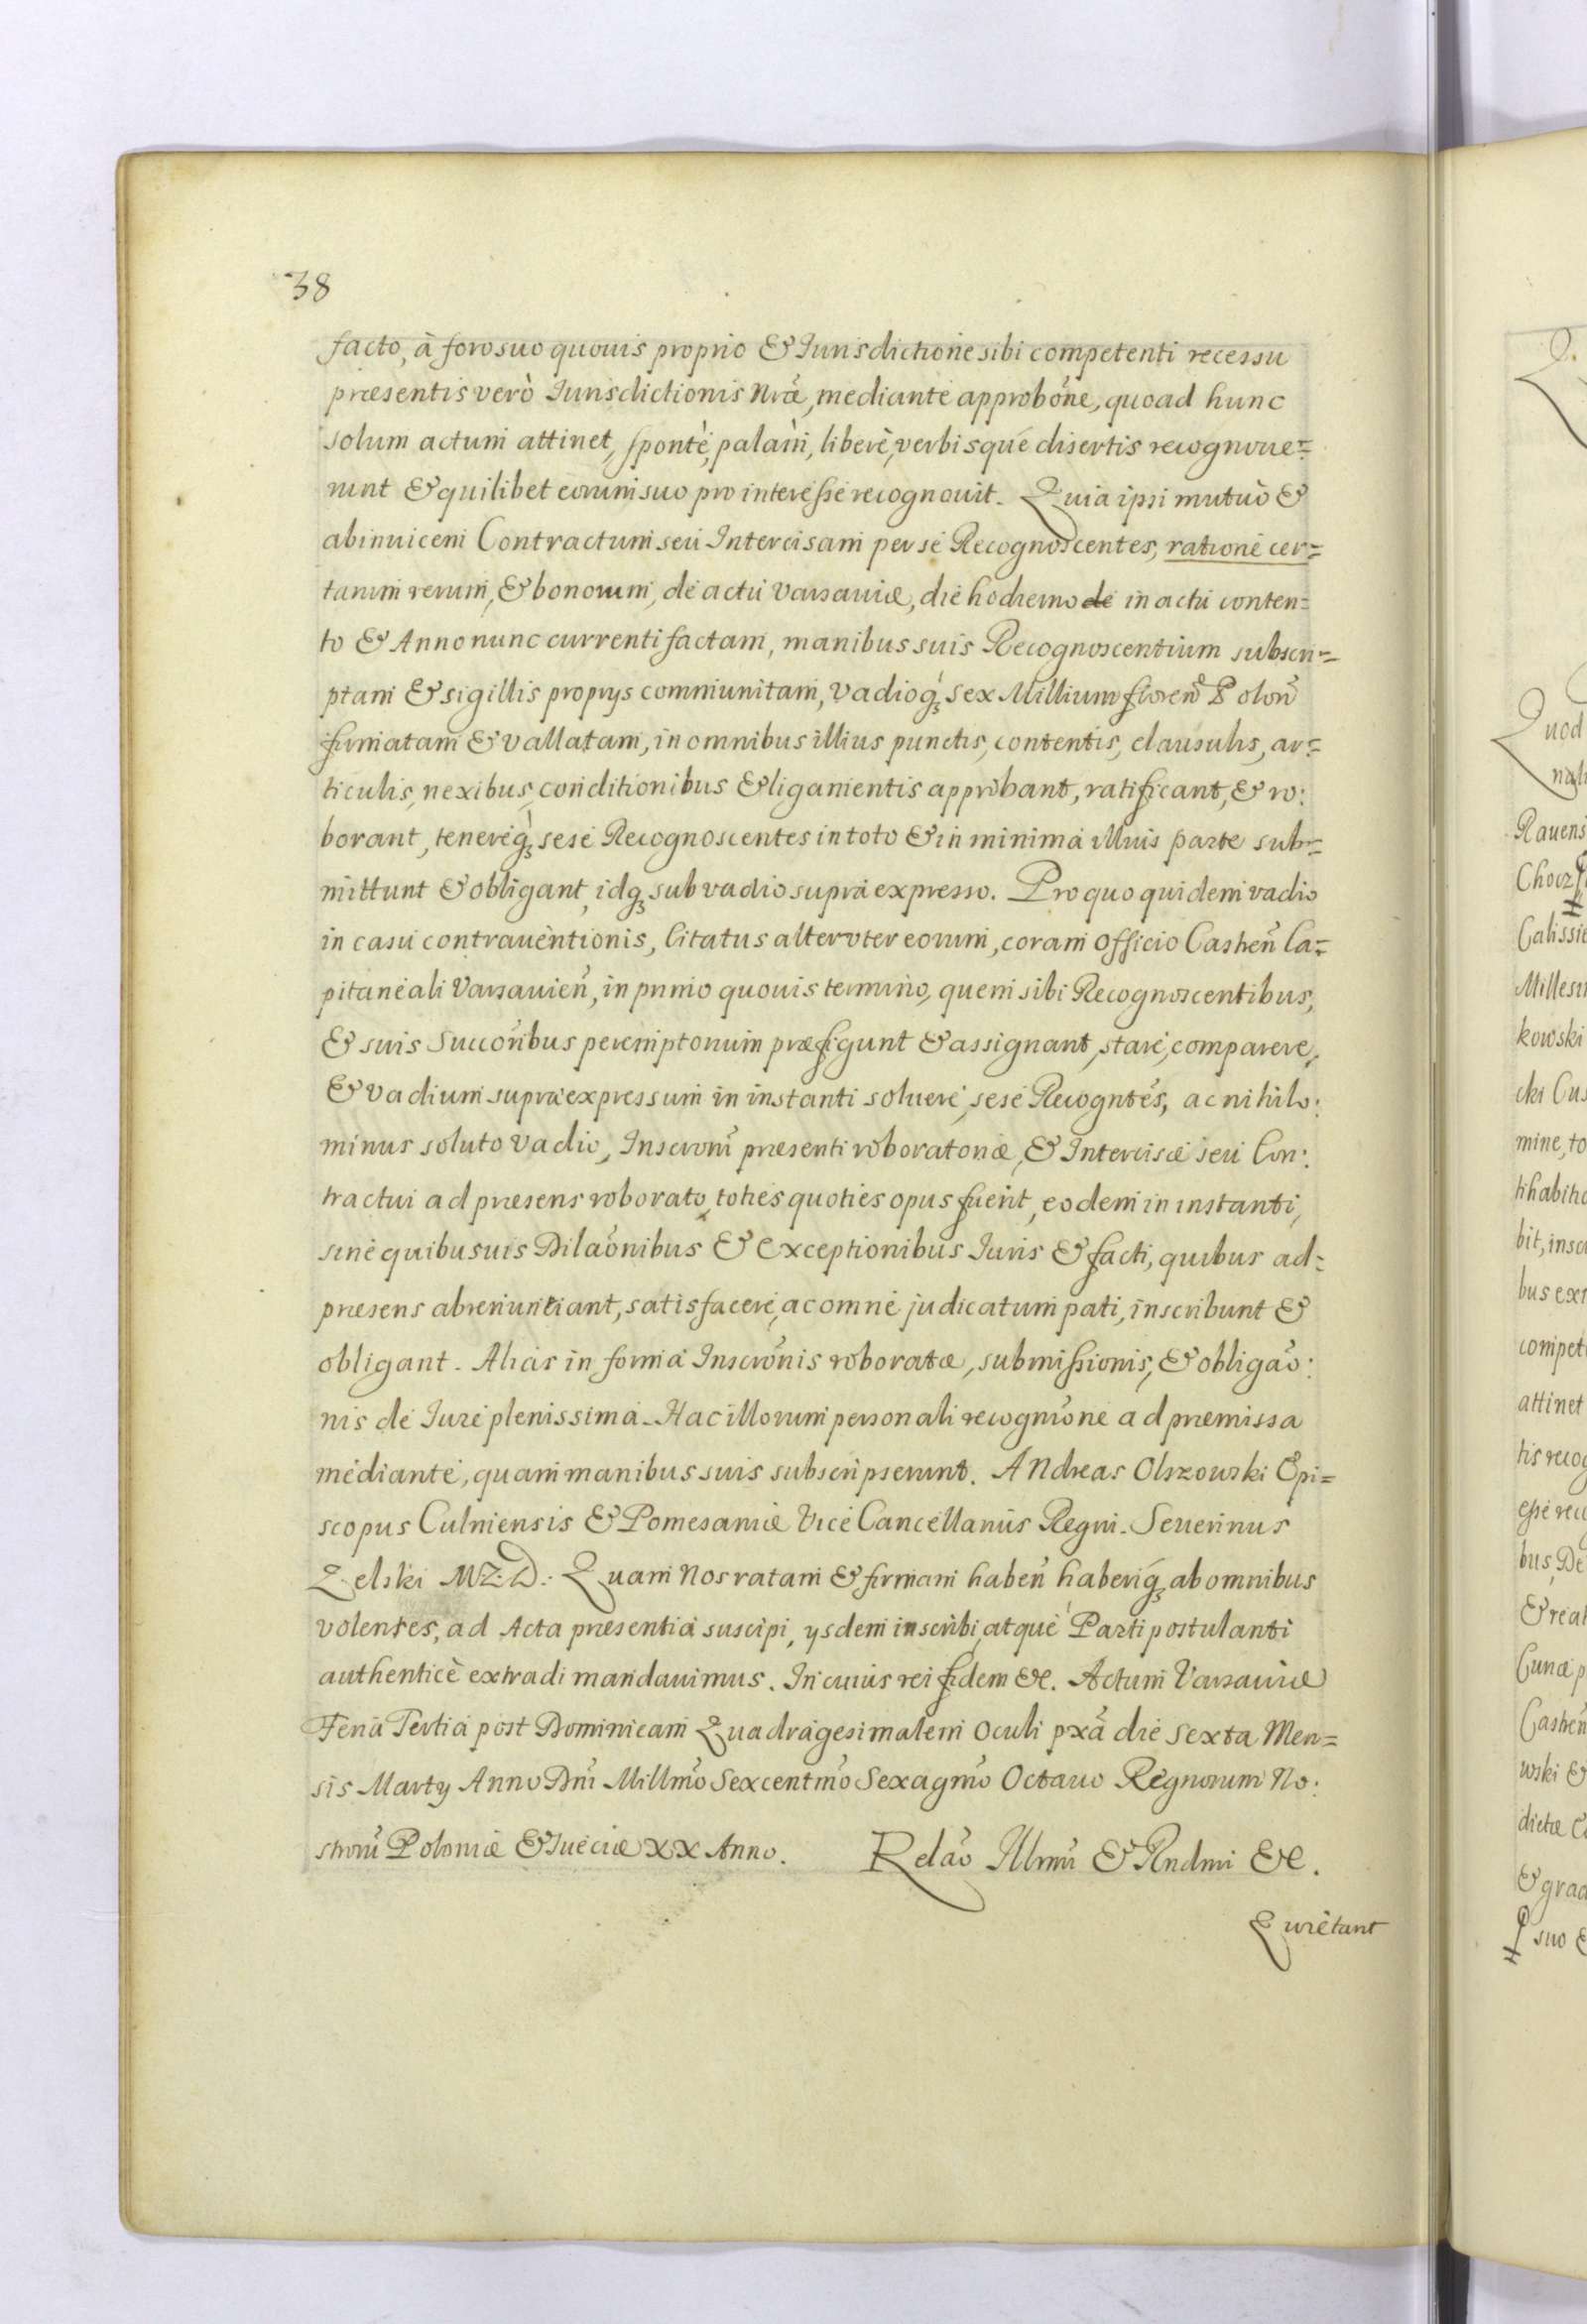 38
facto, à foro suo quouis proprio & Iurisdictione sibi competenti recessu
præsentis verò Iurisdictionis Nræ, mediante approbõne, quoad hunc
solum actum attinet, sponte, palam, liberè, verbisque disertis recognoue=
runt & quilibet eorum suo pro interesse recognouit. Quia ipsi mutuò &
abinuicem Contractum seu Intercisam per se Recognoscentes, ratione cer=
tarum rerum, & bonorum, de actu Varsauiæ, die hodierno de in actu conten=
to & Anno nunc currenti factam, manibus suis Recognoscentium subscri=
ptam & sigillis proprys communitam, Vadioq̃ sex Millium floren̄ Polon̄
firmatam & vallatam, in omnibus illius punctis, contentis, clausulis, ar=
ticulis, nexibus, conditionibus & ligamentis approbant, ratificant, & ro:
borant, tenereq̃ sese Recognoscentes in toto & in minima illius parte sub=
mittunt & obligant, idq̃ sub vadio supra expresso. Pro quo quidem vadio
in casu contrauentionis, Citatus alteruter eorum, coram Officio Castren̄ Ca=
pitaneali Varsauien̄, in primo quouis termino, quem sibi Recognoscentibus,
& suis Succoribus peremptorium præfigunt & assignant, stare, comparere,
& vadium supra expressum in instanti soluere, sese Recogntes, ac nihilo:
minus soluto vadio, Inscroni præsenti roboratoriæ, & Intercisæ seu Con:
tractui ad præsens roborato, toties quoties opus fuerit, eodem in instanti,
sine quibusuis Dilaõnibus & exceptionibus Iuris & facti, quibus ad=
præsens abrenuntiant, satisfacere, ac omne judicatum pati, inscribunt &
obligant. Alias in forma Inscrõnis roboratæ, submissionis, & obligaõ:
nis de Iure plenissima. Hac illorum personali recogniõne ad præmissa
mediante, quam manibus suis subscripserunt. Andreas Olszowski Epi=
scopus Culmensis & Pomesaniæ Vice Cancellarius Regni. Seuerinus
Zelski MZ:D: Quam Nos ratam & firmam haben̄ haberiq̃ ab omnibus
volentes, ad Acta præsentia suscipi, ysdem inscribi, atque Parti postulanti
authenticè extradi mandauimus. In cuius rei fidem &c. Actum Varsauiæ
Feria Tertia post Dominicam Quadragesimalem Oculi pxã die sexta Men=
sis Marty Anno Dnĩ Millmõ Sexcentmõ Sexagmõ Octauo Regnorum No:
strorũ Poloniæ & Sueciæ XX Anno. Relaõ Illmi & Rndmi &c.
Quietant